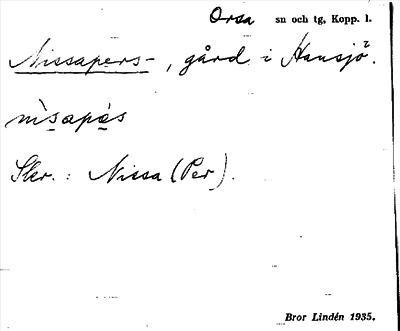 Orsa sn och tg, Kopp. l.
Nissapers-, gård i Hansjö.
nìsapæ̀s
Skr.: Nissa (Per).
Bror Lindén 1935.